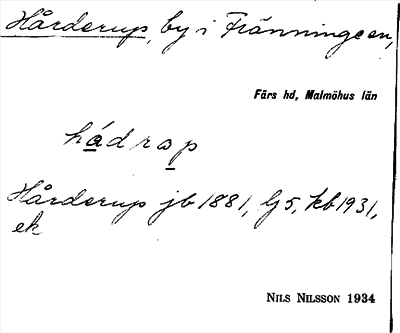 Hårderup, by i Fränninge sn,
Färs hd, Malmöhus län
hádrap
Hårderup jb 1881, Gs, kb 1931,
ek
NILS NILSSON 1934